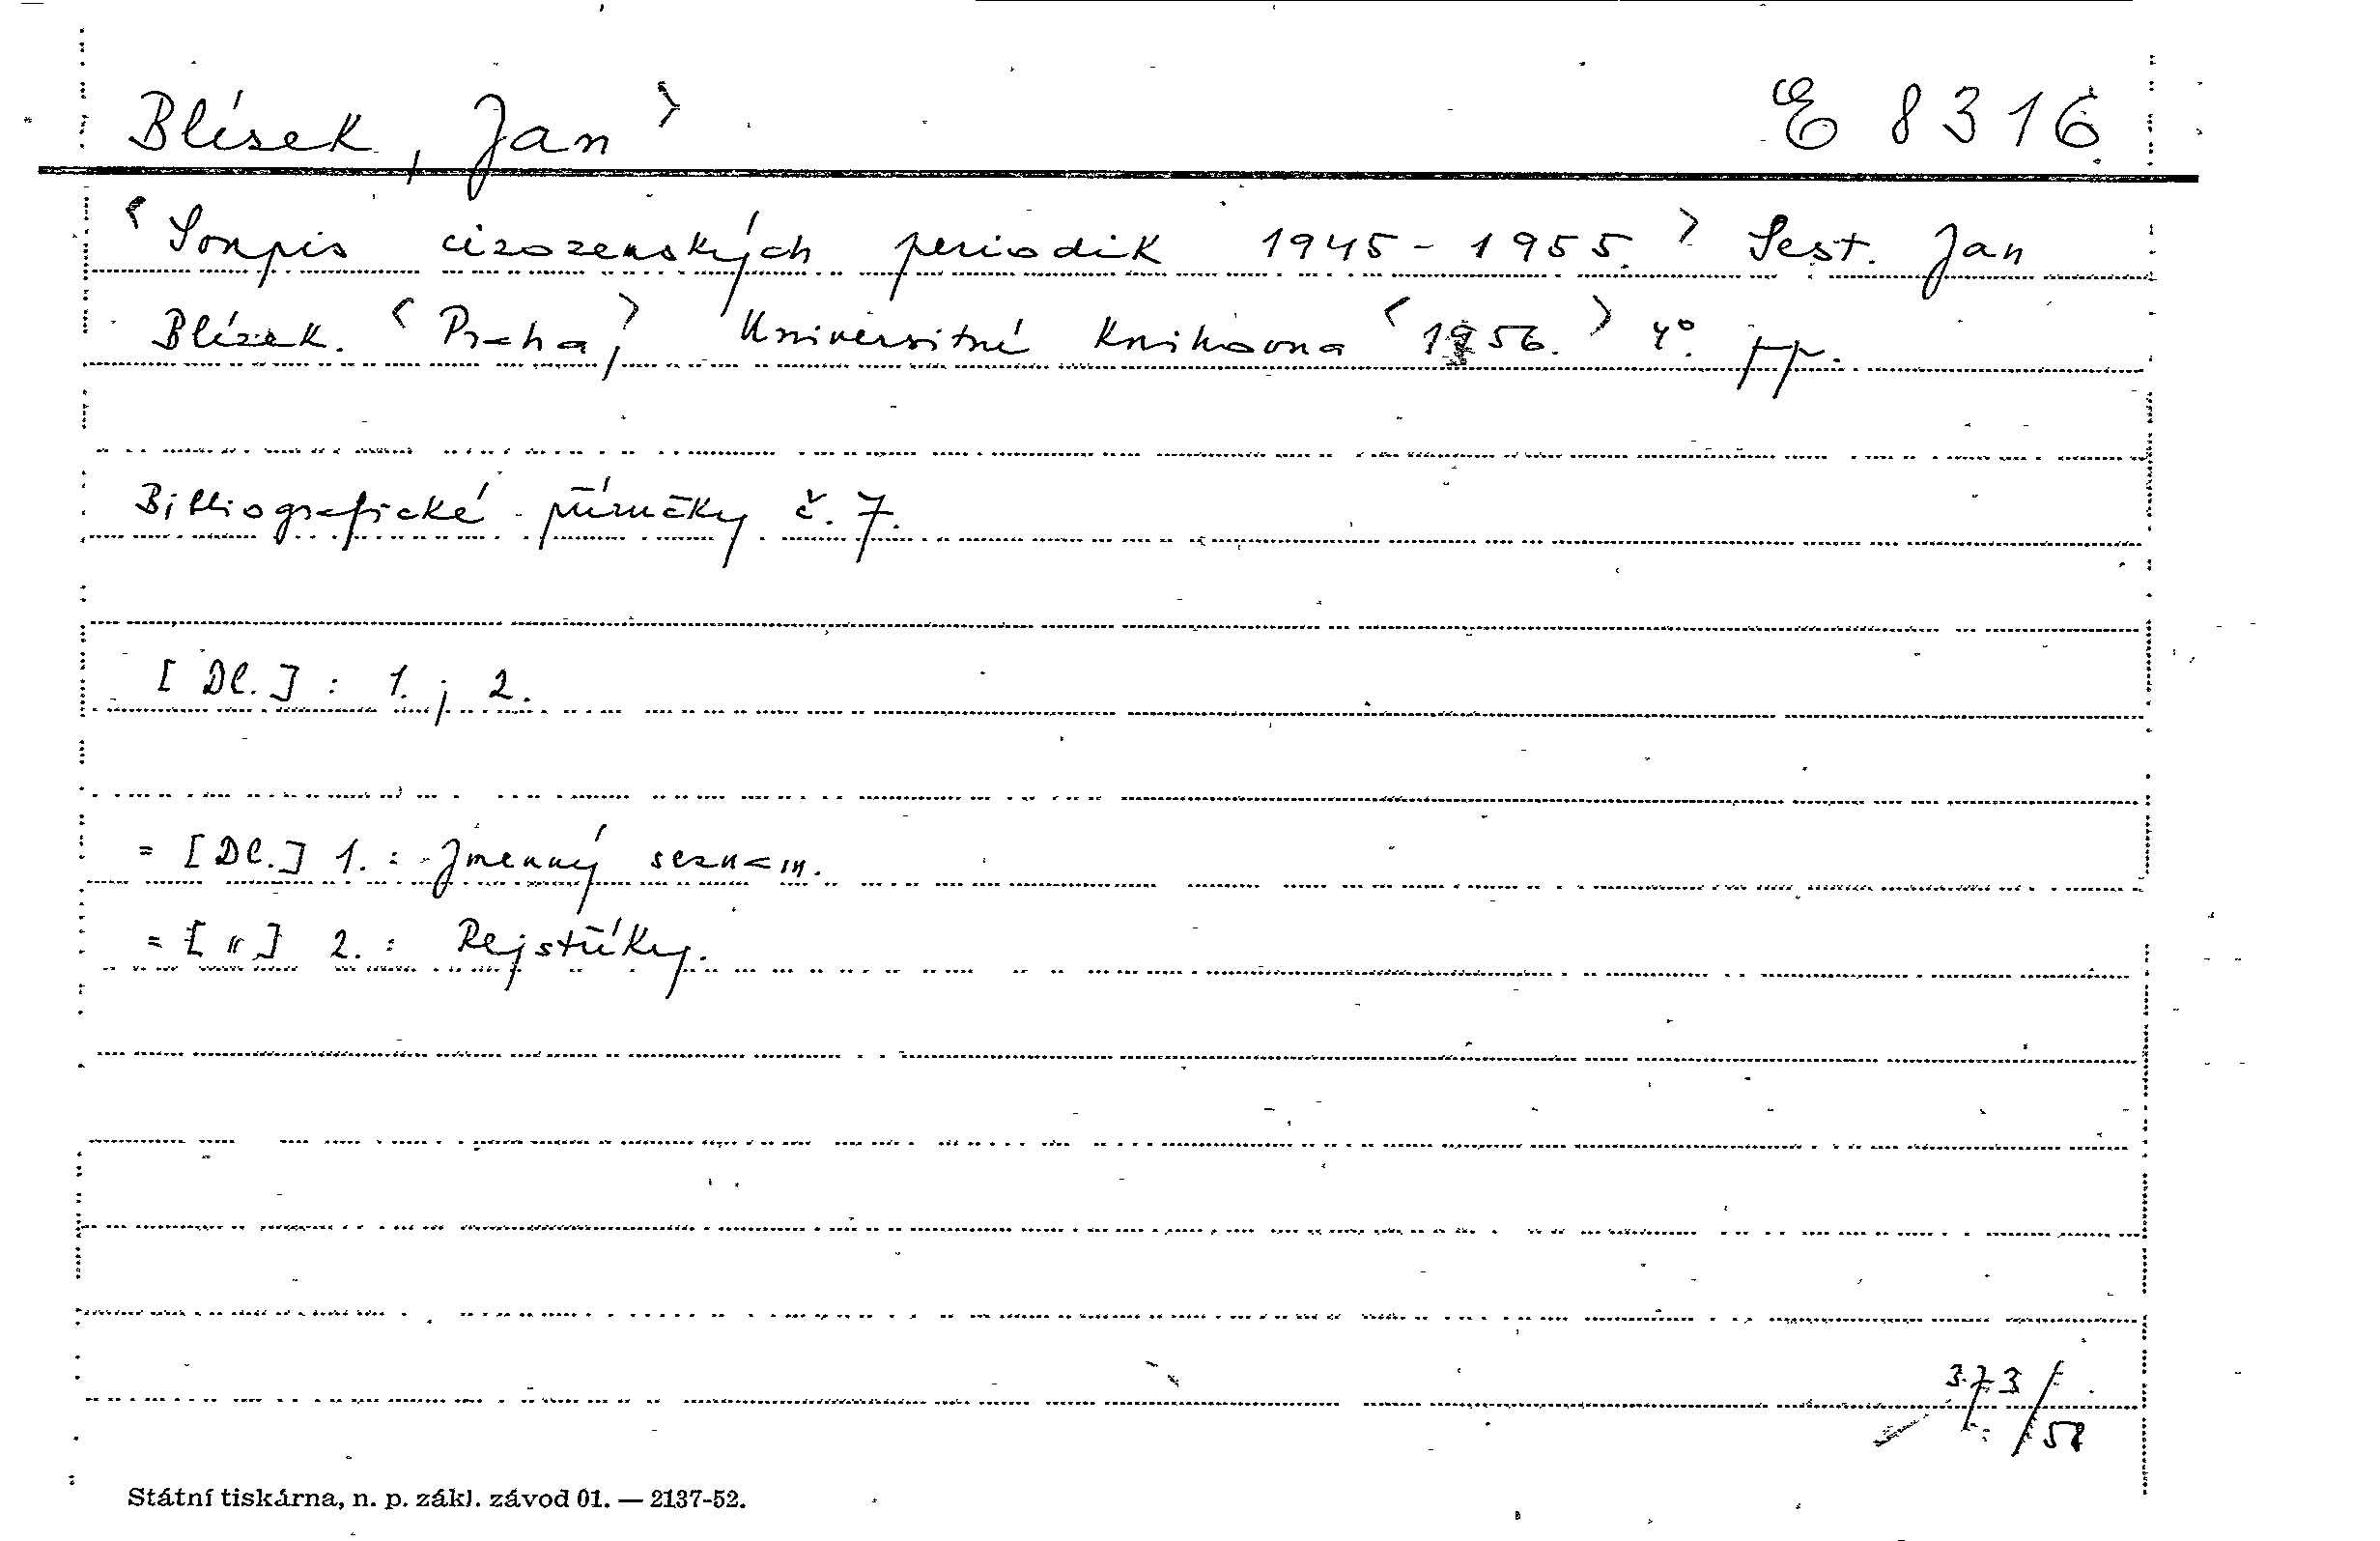 Blízek, Jan> E 8316
<Soupis cizozemských periodik 1945-1955.> Sest. Jan
Blízek. <Praha,> Universitní knihovna <1956.> 4°. pp.
Bibliografické příručky č. 7.
[Dl.] : 1. ; 2.
= [Dl.] 1. : Jmenný seznam.
= [〃] 2. : Rejstříky.
373/58
Státní tiskárna, n. p. zákl. závod 01. — 2137-52.